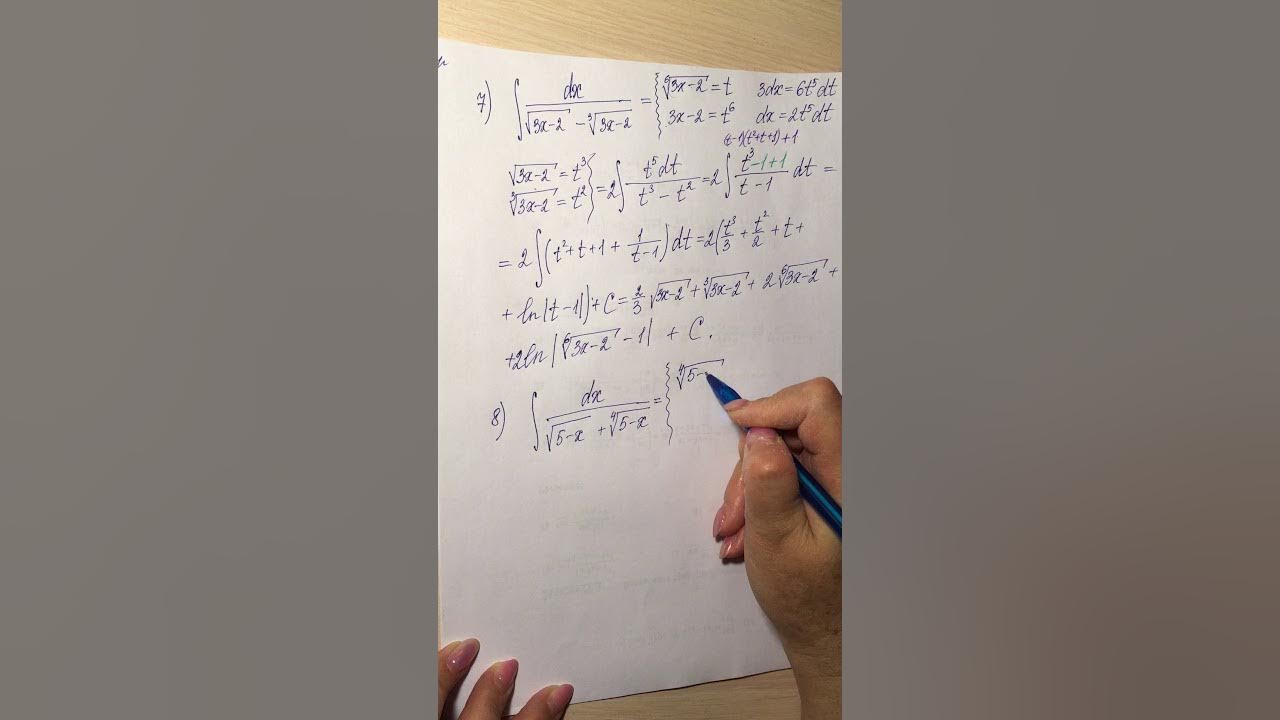 7) ∫ dx / (√(3x-2) - ∛(3x-2)) = { ⁶√(3x-2) = t   3dx = 6t⁵dt
3x-2 = t⁶   dx = 2t⁵dt
(t-1)(t²+t+1)+1
√(3x-2) = t³
∛(3x-2) = t² } = 2∫ t⁵dt / (t³ - t²) = 2∫ (t³ -1+1) / (t-1) dt =
= 2∫(t²+t+1 + 1/(t-1)) dt = 2(t³/3 + t²/2 + t +
+ ln|t-1|) + C = 2/3 √(3x-2) + ∛(3x-2) + 2 ⁶√(3x-2) +
+2ln|⁶√(3x-2) - 1| + C.
8) ∫ dx / (√(5-x) + ⁴√(5-x)) = { ⁴√(5-